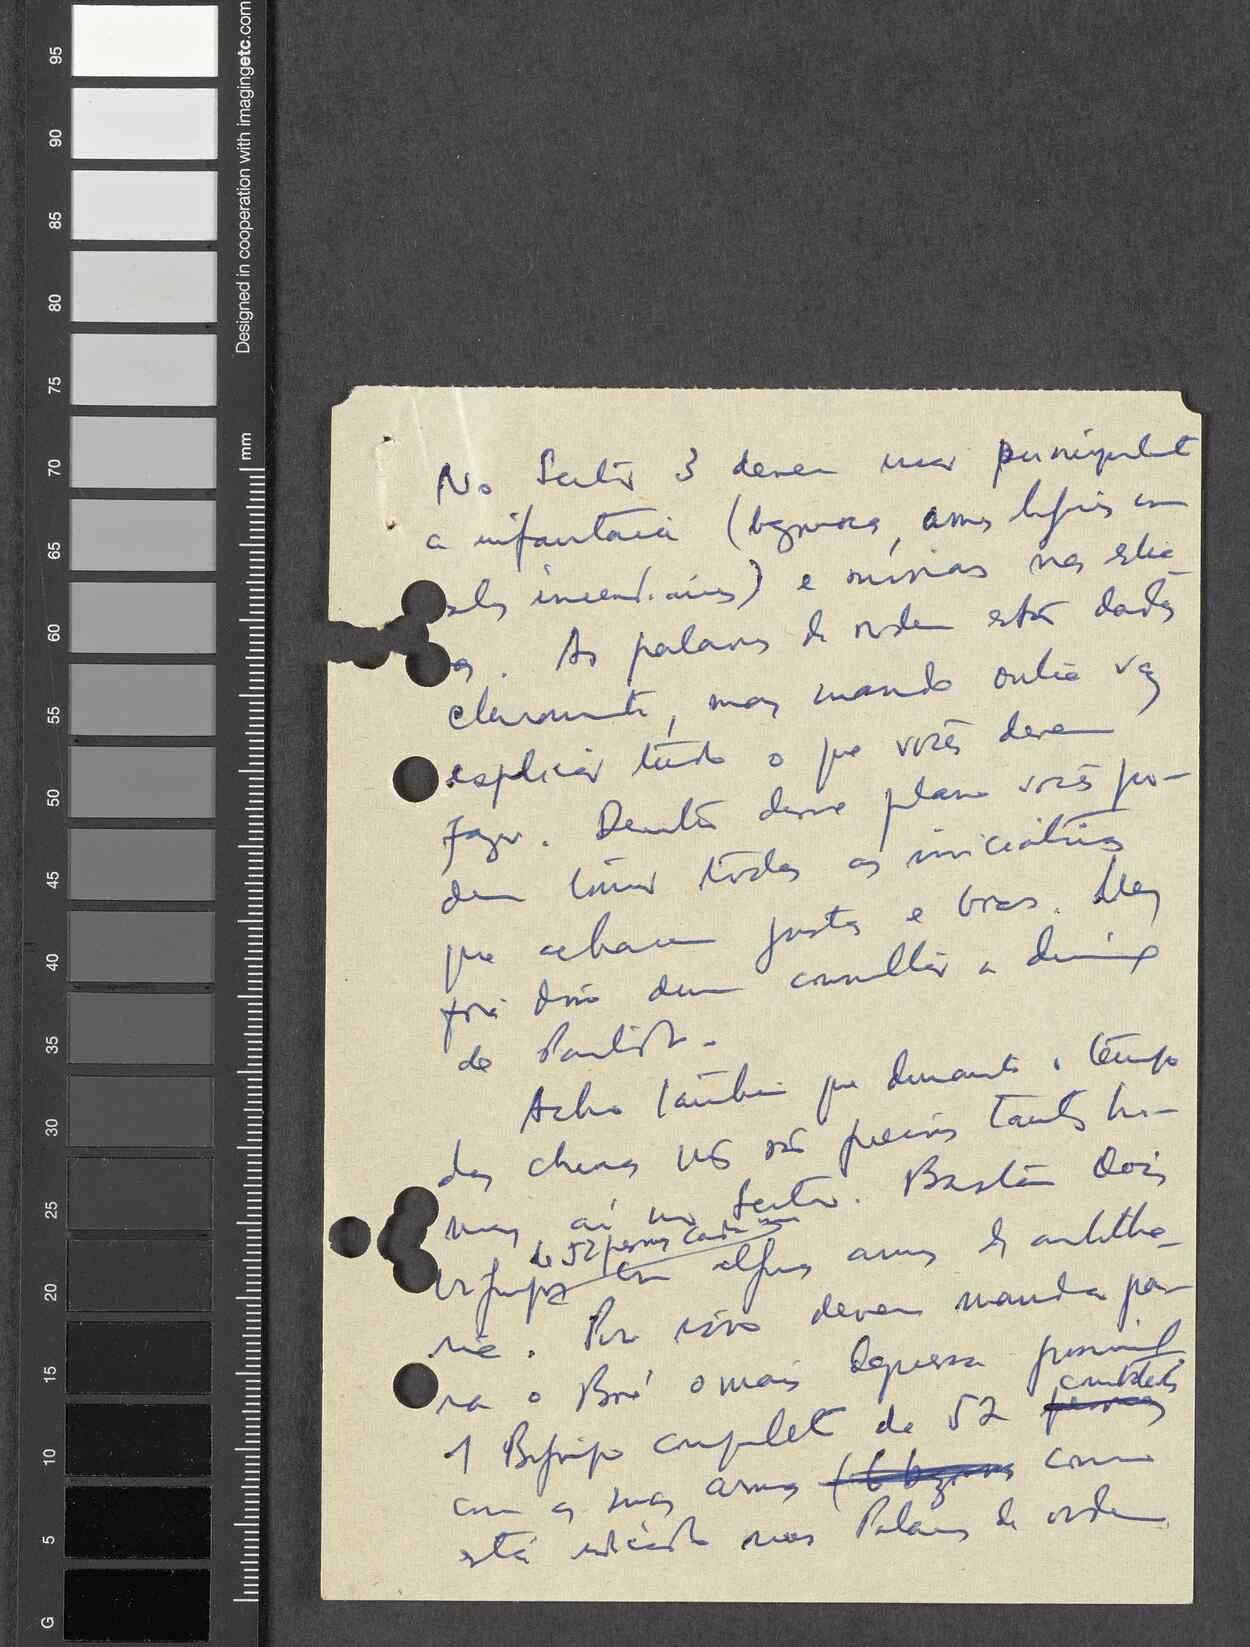 95
90
85
80
75
70
65
60
55
50
45
40
35
30
25
20
15
10
5
G
Designed in cooperation with imagingetc.com
mm
No Sector 3 devem usar principalmt
a infantaria (bazucas, armas ligeiras com
balas incendiárias) e minas nas estra-
das. As palavras de ordem estão dadas
claramente, mas mando outra vez
explicar tudo o que vocês devem
fazer. Dentro desse plano vocês po-
dem tomar todas as iniciativas
que acharem justas e boas. Mas
fora disso devem consultar a
do Partido.
Acho também que durante o tempo
das chuvas não são precisos tantos ho-
mens aí no Sector. Bastam dois
bigrupos com algumas armas de artilha-
de 52 pessoas cada um
ria. Por isso devem mandar pa-
ra o Boé o mais depressa possível
1 Bigrupo completo de 52 pessoas
combatentes
com as suas armas (6 bazucas como
está indicado nas Palavras de ordem